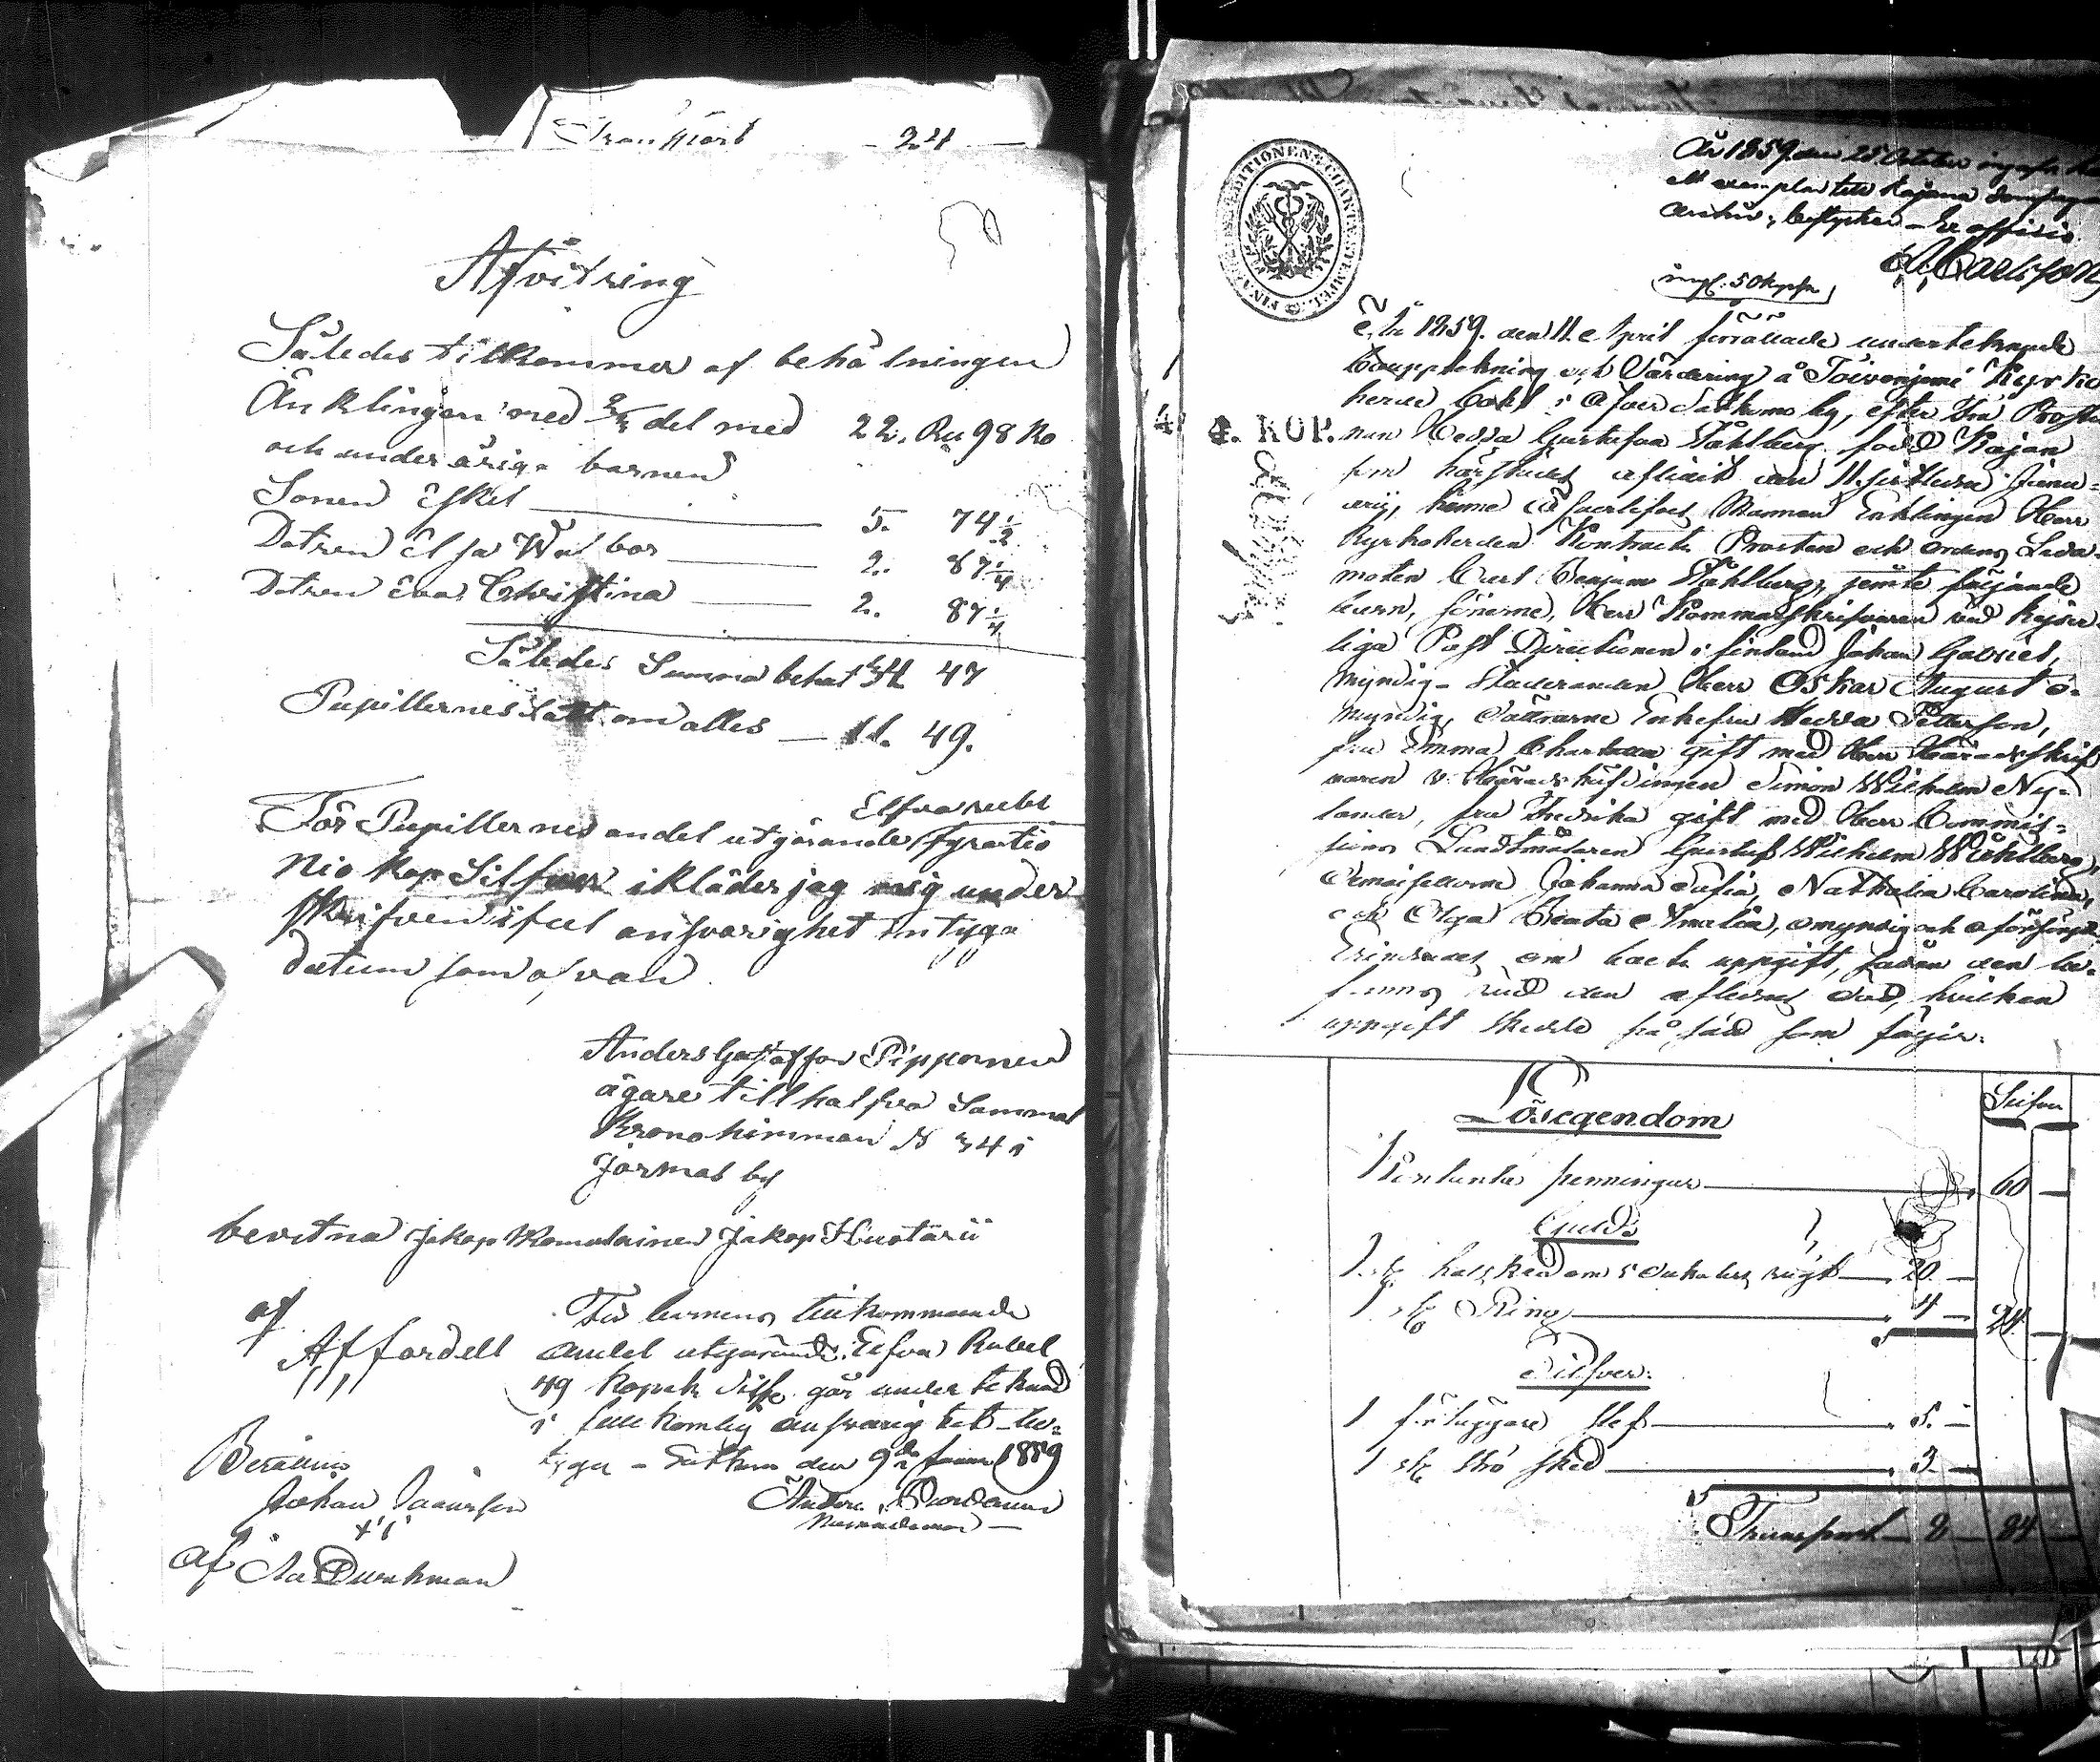 Transport 24
Afvitring
Således tillkommer af behålningen
Änklingen med 2/3 del med 22. Ru 98 Ko
och underåriga barnen
Sonen Eskel 5. 74 1/2
Dotren Elsa Walbor 2. 87 1/4
Dotren Eva Christina 2. 87 1/4
Således Summa behåln 34 47
Pupillernes lått om alles 11. 49.
Elfva rubel
För Pupillernes andel utgörande fyratio
Nio kop Silfver ikläder jag mig under
skrifven ifull ansvarighet intyga
datum som ofvan
Anders Gustafson Pipponen
ägare till halfva Sammal
Krono himman N 34 i
Jormas by
bevitna Jakop Komulainen Jakop Huotarii
af
Affordell
För barnens tillkommande
andel utgörande Elfva Rubel
49 Kopek Silfr går underteknad
i fullkomlig ansvarighet be-
tygar den 9de 1859
Johan
af
År 1859 den 25 October ingafs
ett exemplar till Kajana domsagas
archiv; betyder Ex officio
ingl. 50 kop
FINANCE EXPEDITIONENS CHARTÆ STEMPEL
4. KOP.
År 1859. den 11. April förrättade undertecknade
Bouppteckning och Värdering å Toivonjemi Kyrko
herde Bohl i Sotkamo by, efter Fru Prosti
nnan Hedda Gustafva Ståhlberg född Kajan
som härstädes aflidit den 11 sistledne Janu-
arij, henne efterlefves Mannen Enklingen Herr
Kyrkoherden Kontrackts Prosten och Ordens Leda-
moten Carl Benjam Ståhlberg, jemte följande
barn, sönerne, Herr Kammarskrifvaren vid Kejser-
liga Post Directionen i finland Johan Gabriel,
myndig, Studeranden Herr Oskar August o-
myndig, döttrarne Enkefru Hedda Petterson,
fru Emma Charlotta gift med Herr Häradsskrif
varen v. Häradshöfdingen Simon Wilhelm Ny-
lander, fru Fredrika gift med Herr Commis-
sions Landtmätaren Gustaf Wilhelm Wåhlberg,
Demoisellerne Johanna Sofia, Nathalia Carolina,
och Olga Beata Amalia, omyndig och oförsörjd
Erindrades om boets uppgift, sådan den be-
fanns vid den aflednes död, hvilken
uppgift skedde på sätt som följer:
Lösegendom
Silfver
Kontanta penningar 60
Guld
1 st halsked om 5 dukaters vigt 20
1 st Ring 4 24
Silfver:
1 förläggare slef 5.
1 st strö sked 3
Transport 8 84